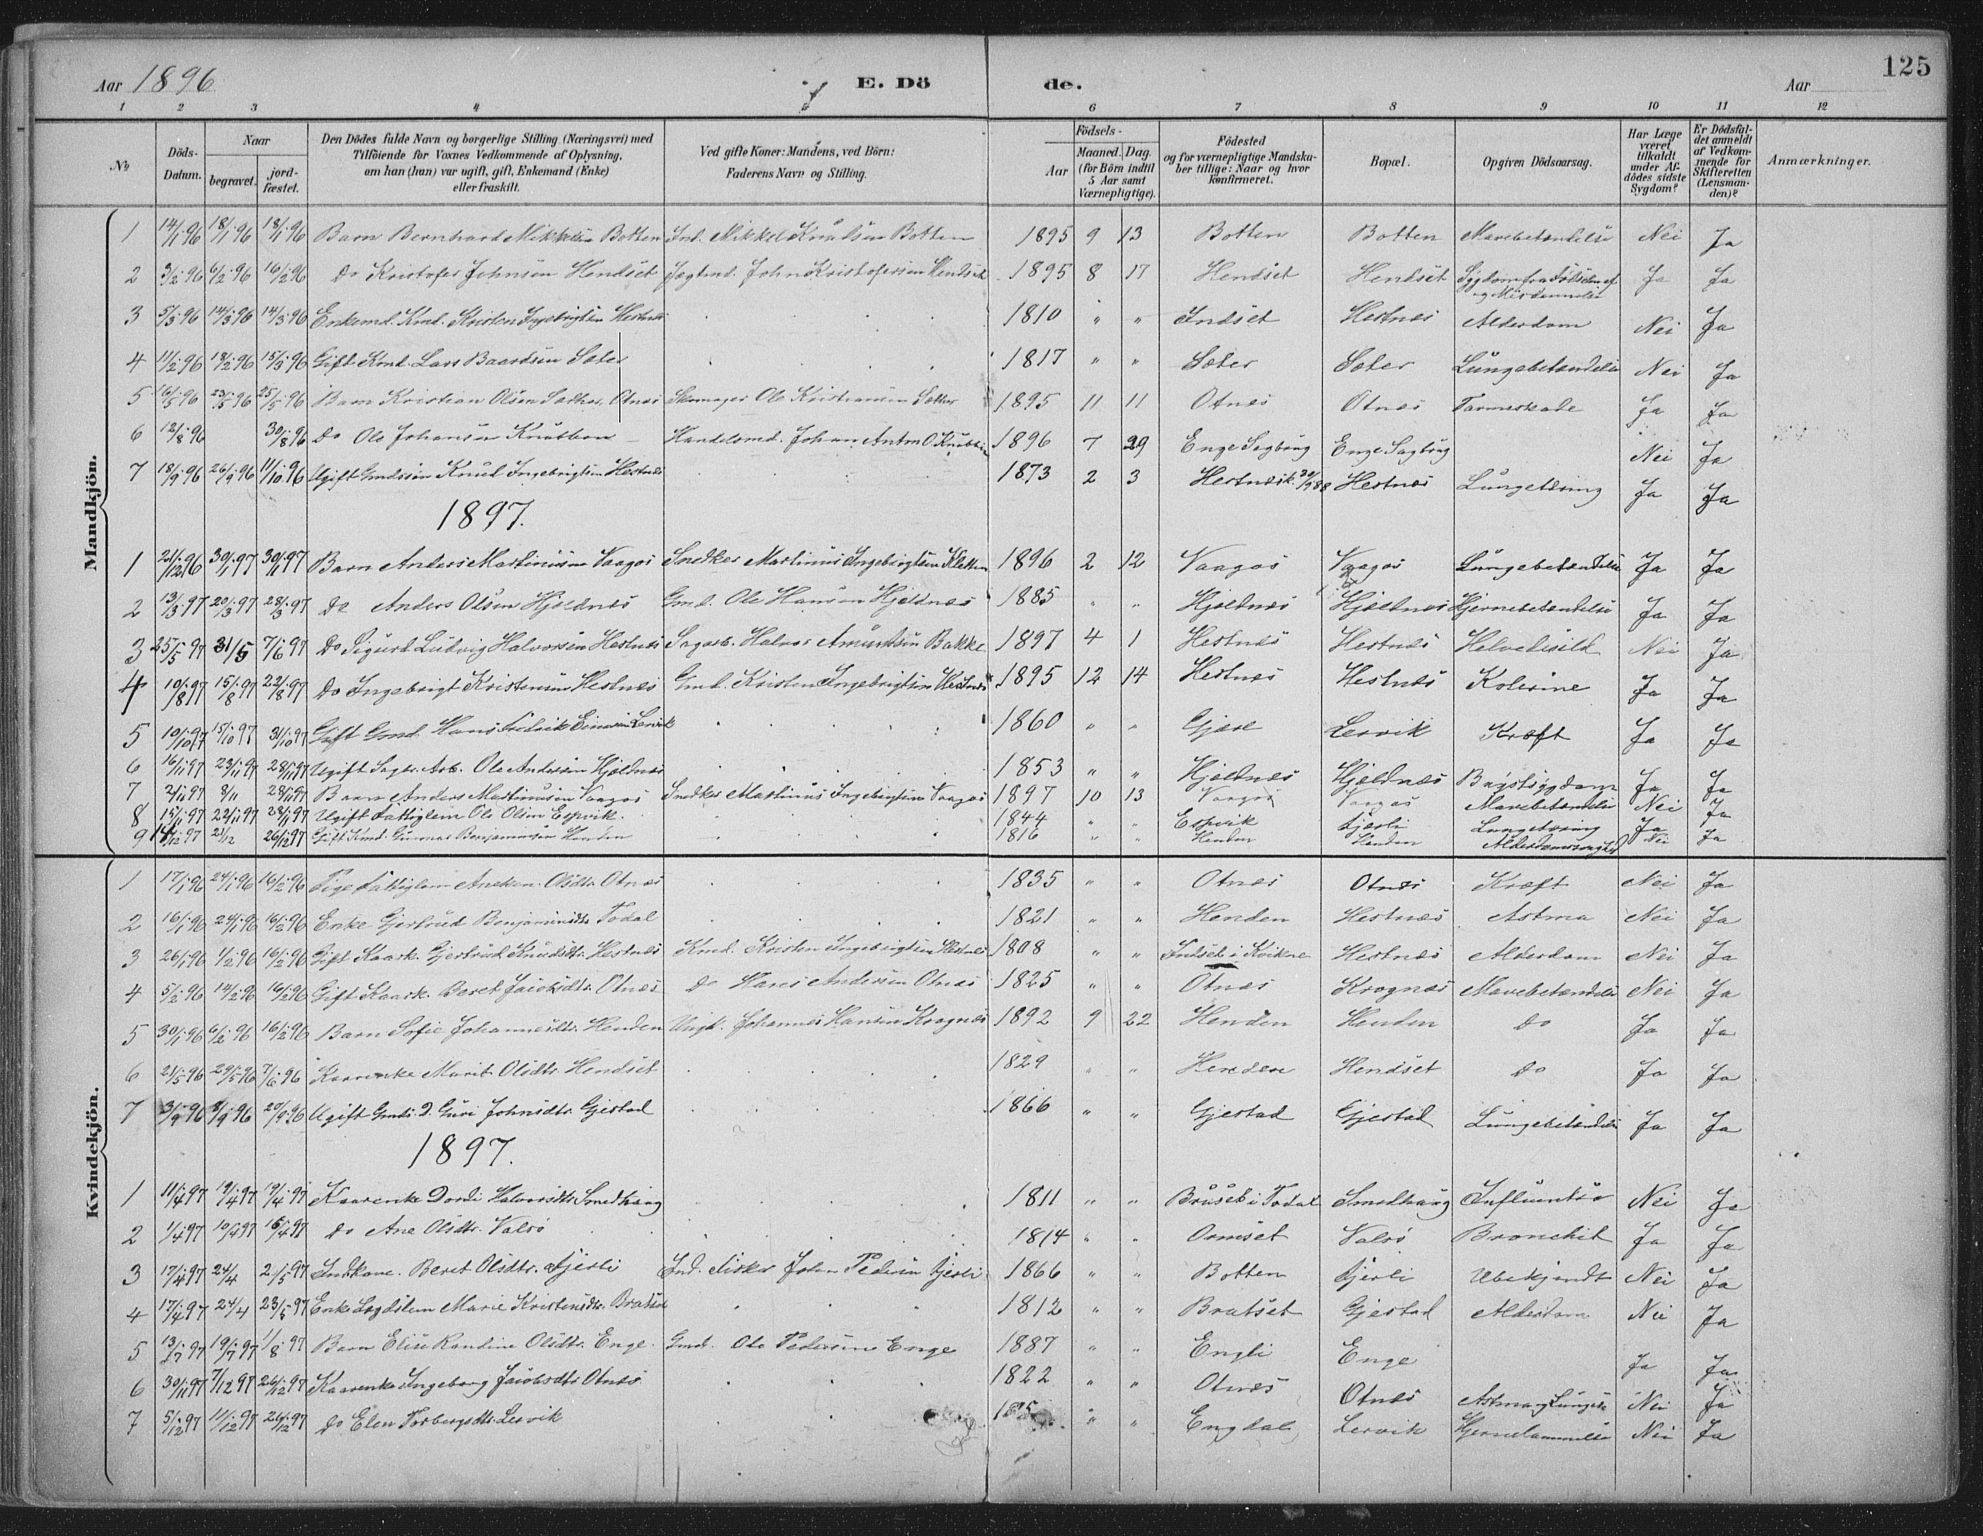 125
Aar 1896 E. Döde. Aar
1 2 3 4 5 6 7 8 9 10 11 12
№ Döds-Datum. Naar begravet. jordfæstet. Den Dödes fulde Navn og borgerlige Stilling (Næringsvei) med Tilföiende for Voxnes Vedkommende af Oplysning, om han (hun) var ugift, gift, Enkemand (Enke) eller fraskilt. Ved gifte Koner: Mandens, ved Börn: Faderens Navn og Stilling. Födsels- Aar Maaned. Dag. (for Börn indtil 5 Aar samt Værnepligtige). Födested og for værnepligtige Mandskaber tillige: Naar og hvor konfirmeret. Bopæl. Opgiven Dödsaarsag. Har Læge været tilkaldt under Afdödes sidste Sygdom? Er Dödsfaldet anmeldt af Vedkommende for Skifteretten (Lensmanden)? Anmærkninger.
Mandkjön.
1 14/1 96 18/1 96 18/1 96 Barn Bernhard Mikkelsen Botten Ind. Mikkel Knudsen Botten 1895 9 13 Botten Botten Mavebetændelse Nei Ja
2 3/2 96 6/2 96 16/2 96 Do Kristofer Johnsen Hendset John Kristofersen Hendset 1895 8 17 Hendset Hendset Sygdom fra Fødselen af Ja Ja
3 5/3 96 14/3 96 14/3 96 Enkemd. Kmd. Kristen Ingebrigtsen Hestnes 1810 " " Indset Hestnes Alderdom Nei Ja
4 11/2 96 18/2 96 15/3 96 Gift Kmd. Lars Baardsen Sæter 1817 " " Sæter Sæter Lungebetændelse Nei Ja
5 16/5 96 23/5 96 25/5 96 Barn Kristian Olsen Sæther Otnes Skomager Ole Kristiansen Sæther 1895 11 11 Otnes Otnes Tarmeskade Ja Ja
6 12/8 96 30/8 96 Do Ole Johansen Knutsen Handelsmd. Johan Anton O Knutsen 1896 7 29 Enge Sagbrug Enge Sagbrug Nei Ja
7 18/9 96 26/9 96 11/10 96 Ugift Gmdssøn Knud Ingebrigtsen Hestnes 1873 2 3 Hestnes k. 30/9 88 Hestnes Lungetæring Ja Ja
1897.
1 21/12 96 30/1 97 30/1 97 Barn Anders Martinusen Vaagos Snedker Martinus Ingebrigtsen Kletten 1896 2 12 Vaagos Vaagos Lungebetændelse Ja Ja
2 13/3 97 20/3 97 28/3 97 Do Anders Olsen Hjeldnes Gmd. Ole Hansen Hjeldnes 1885 " " Hjeldnes Hjeldnes Hjernebetændelse Ja Ja
3 25/5 97 31/5 7/6 97 Do Sigurd Ludvig Halvorsen Hestnes Sagarb. Halvor Amundsen Bakke 1897 4 1 Hestnes Hestnes Helvedesild Nei Ja
4 10/8 97 15/8 97 22/8 97 Do Ingebrigt Kristensen Hestnes Gmd. Kristen Ingebrigtsen Hestnes 1895 12 14 Hestnes Hestnes Kolerine Ja Ja
5 10/10 97 15/10 97 31/10 97 Gift Gmd. Hans Fredrik Lervik 1860 " " Gjøre Lervik Kræft Ja Ja
6 16/11 97 23/11 97 28/11 97 Ugift Sager. Arb. Ole Andersen Hjeldnes 1853 " " Hjeldnes Hjeldnes Brystsygdom Ja Ja
7 2/11 97 8/11 28/11 97 Barn Anders Martinusen Vaagos Snedker Martinus Ingebrigtsen Vaagos 1897 10 13 Vaagos Vaagos Mavebetændelse Nei Ja
8 15/11 97 22/11 97 28/11 97 Ugift Fattiglem Ole Olsen Espvik 1844 " " Espvik Fjerli Lungetæring Ja Ja
9 14/12 97 21/12 26/12 97 Gift Kmd. Gunnar Benjaminsen Henden 1816 " " Henden Henden Alderdomssvaghed Nei Ja
Kvindekjön.
1 17/1 96 24/1 96 16/2 96 Pige Fattiglem Olsdtr. Otnes 1835 " " Otnes Otnes Kræft Nei Ja
2 16/1 96 24/1 96 16/2 96 Enke Gjertrud Benjaminsdtr. Todal 1821 " " Henden Hestnes Astma Nei Ja
3 26/1 96 1/2 96 16/2 96 Gift Kaark. Gjertrud Knudsdtr. Hestnes Kmd. Kristen Ingebrigtsen Hestnes 1808 " " Indset i Kvikne Hestnes Alderdom Nei Ja
4 5/2 96 14/2 96 16/2 96 Gift Kaark. Beret Jakobsdtr. Otnes Do Hans Andersen Otnes 1825 " " Otnes Krognes Mavebetændelse Nei Ja
5 30/1 96 6/2 96 16/2 96 Barn Sofie Johannesdtr. Henden Ungk. Johannes Hansen Krognes 1892 9 22 Henden Henden Do Ja Ja
6 21/5 96 29/5 96 7/6 96 Kaarenke Marit Olsdtr. Hendset 1829 " " Henden Hendset Do Ja Ja
7 3/9 96 9/9 96 20/9 96 Ugift Gmds. D. Guri Johnsdtr. Gjestad 1866 " " Gjestad Gjestad Lungebetændelse Ja Ja
1897.
1 11/4 97 19/4 97 19/4 97 Kaarenke Dordi Halvorsdtr. Smedhaug 1811 " " Bruset i Todal Smedhaug Influentsa Nei Ja
2 1/4 97 10/4 97 16/4 97 Do Ane Olsdtr. Valsø 1814 " " Ormset Valsø Bronchit Ja Ja
3 17/4 97 24/4 2/5 97 Indkone. Beret Olsdtr. Fjerli Ind. Fisker John Pedersen Fjerli 1866 " " Botten Fjerli Ubekjendt Nei Ja
4 17/4 97 24/4 23/5 97 Enke Lægdslem Marie Kristensdtr. Bratset 1812 " " Bratset Gjestad Alderdom Nei Ja
5 13/7 97 19/7 97 1/8 97 Barn Elise Randine Olsdtr. Enge Gmd. Ole Pedersen Enge 1887 " " Engli Enge Ja Ja
6 30/11 97 7/12 97 26/12 97 Kaarenke Ingeborg Jakobsdtr. Otnes 1822 " " Otnes Otnes Astma og Lunge Nei Ja
7 5/12 97 11/12 97 26/12 97 Do Elen Torbergsdtr. Lervik " " Engdal Lervik Hjernelammelse Nei Ja